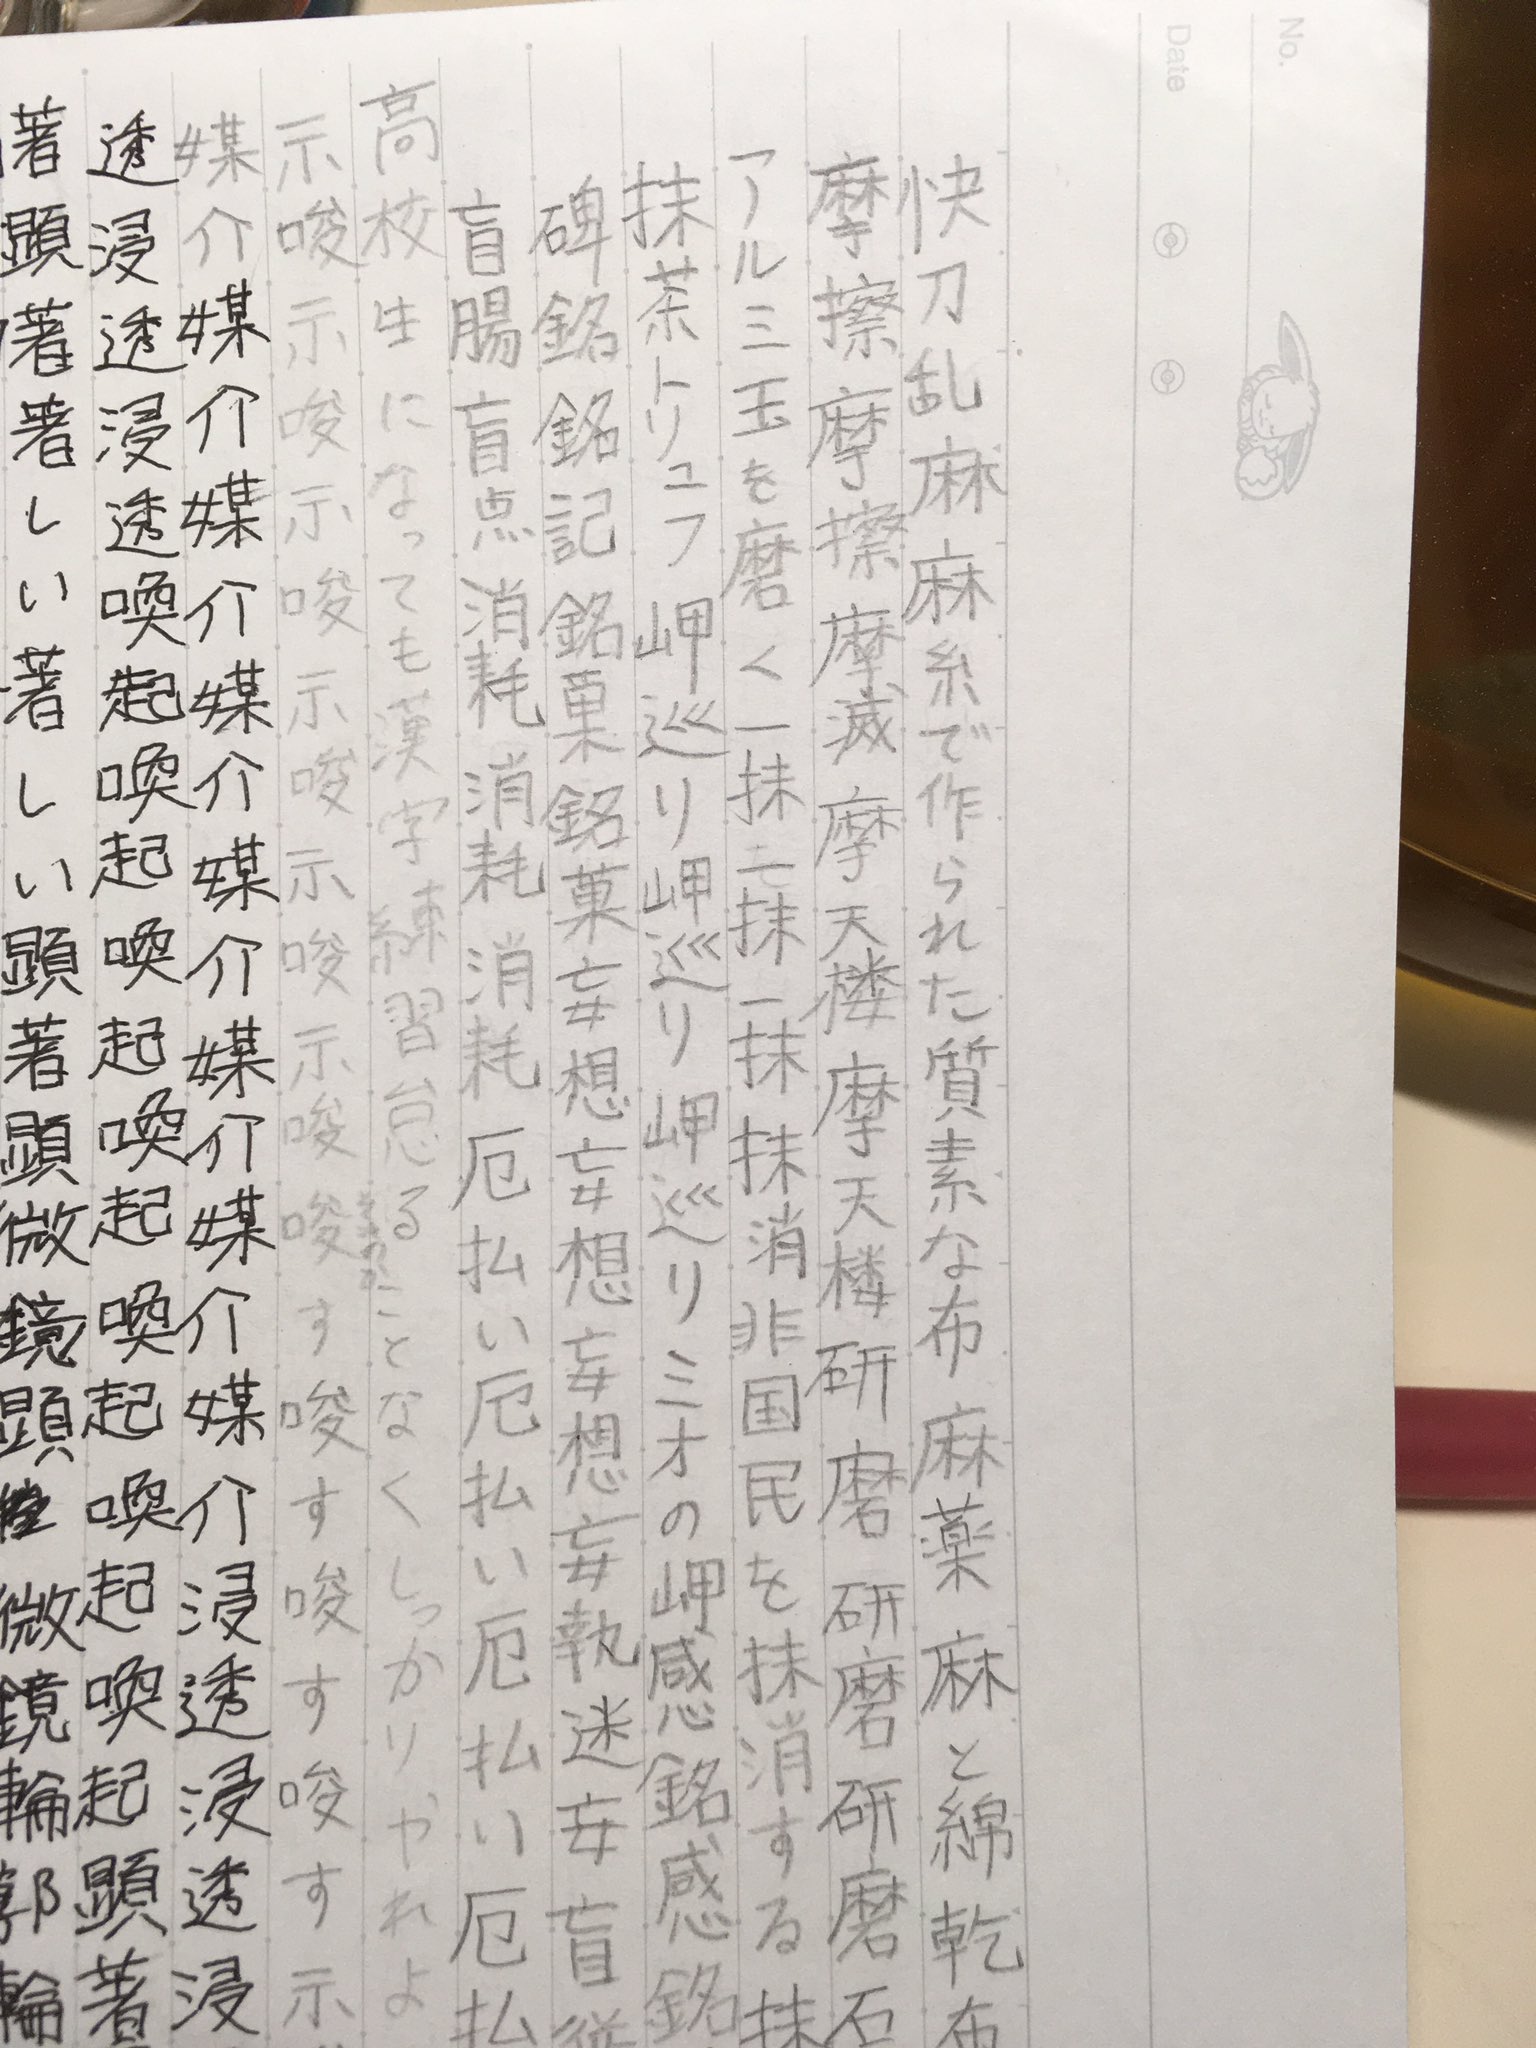 No.
Date
快刀乱麻麻糸で作られた質素な布麻薬麻と綿乾布
摩擦摩擦摩滅摩天楼摩天楼研磨研磨研磨石
アルミ玉を磨く一抹一抹一抹抹消非国民を抹消する抹
抹茶トリュフ岬巡り岬巡り岬巡りミオの岬感銘感銘
碑銘銘記銘菓銘菓妄想妄想妄想妄執迷妄盲従
盲腸盲点消耗消耗消耗厄払い厄払い厄払い厄払
高校生になっても漢字練習怠ることなくしっかりやれよ
示唆示唆示唆示唆示唆示唆唆す唆す唆す唆す示
媒介媒介媒介媒介媒介媒介媒介媒介浸透浸透浸
透浸透浸透喚起喚起喚起喚起喚起喚起喚起顕著
著顕著著しい著しい顕著顕微鏡顕微鏡輪郭輪